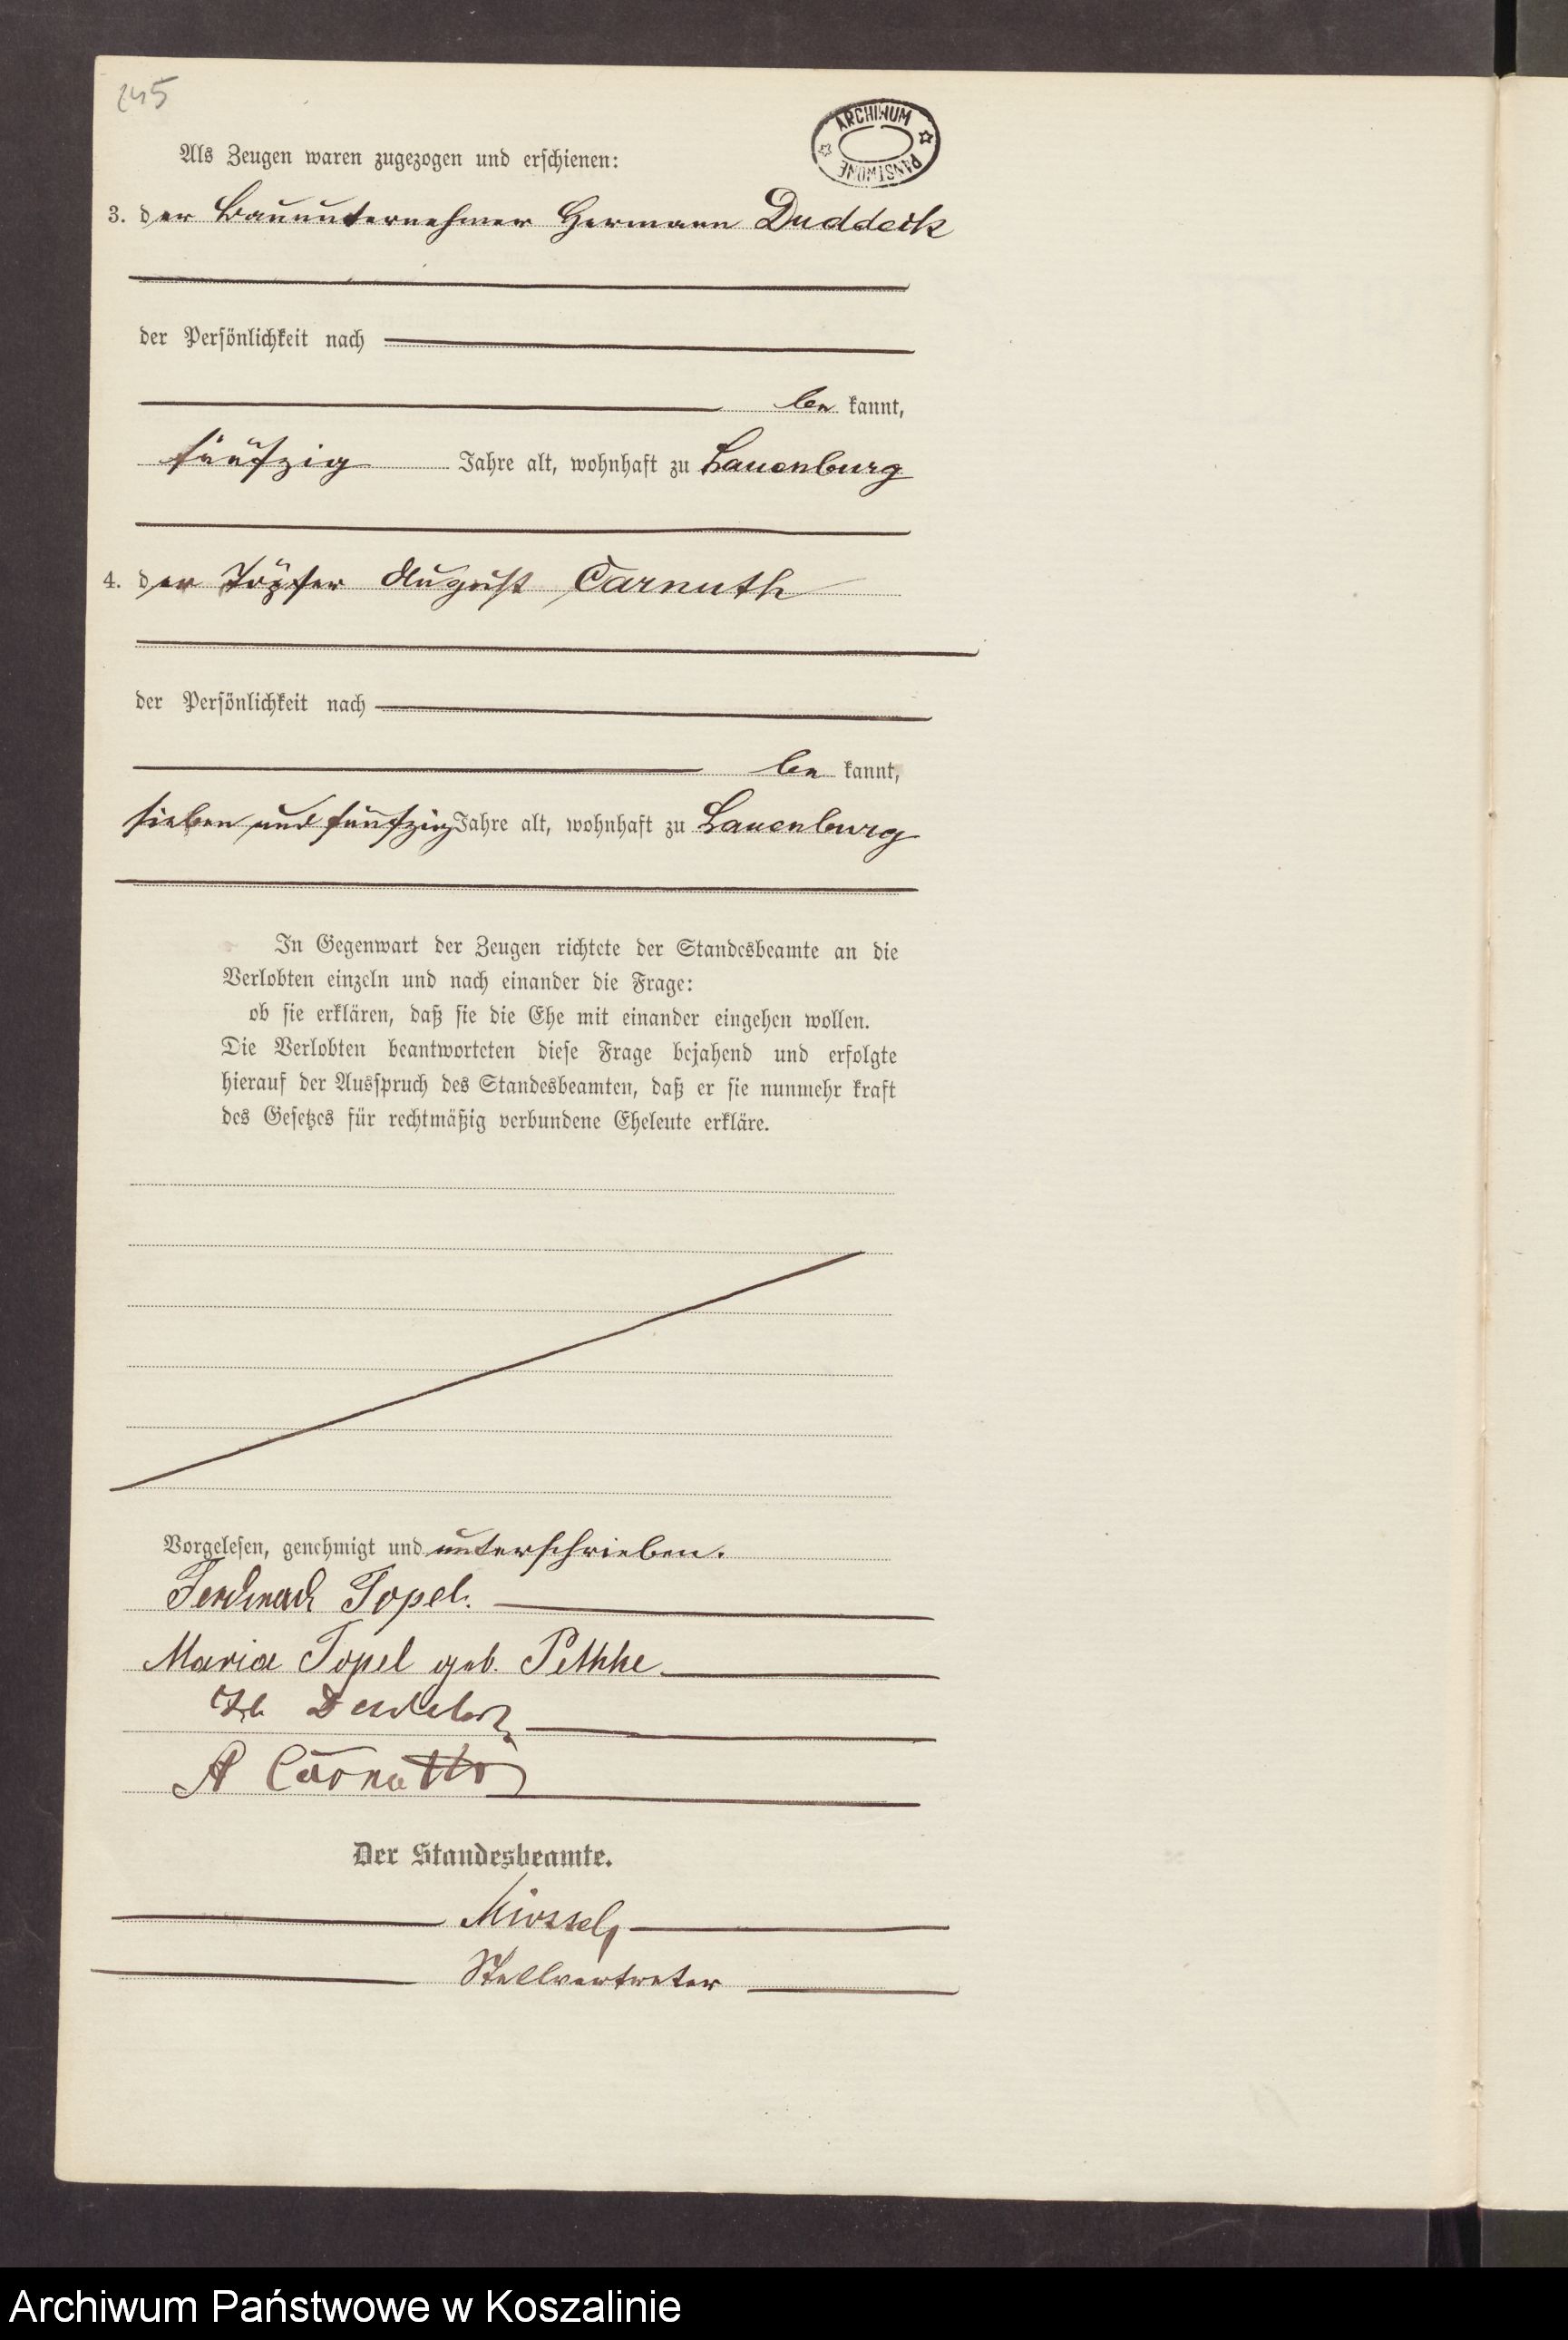 245
ARCHIWUM PAŃSTWOWE
Als Zeugen waren zugezogen und erschienen:
3. der Bauunternehmer Hermann Duddeck
der Persönlichkeit nach
be kannt,
fünfzig Jahre alt, wohnhaft zu Lauenburg
4. der Töpfer August Carnuth
der Persönlichkeit nach
be kannt,
sieben und fünfzig Jahre alt, wohnhaft zu Lauenburg
In Gegenwart der Zeugen richtete der Standesbeamte an die
Verlobten einzeln und nach einander die Frage:
ob sie erklären, daß sie die Ehe mit einander eingehen wollen.
Die Verlobten beantworteten diese Frage bejahend und erfolgte
hierauf der Ausspruch des Standesbeamten, daß er sie nunmehr kraft
des Gesetzes für rechtmäßig verbundene Eheleute erkläre.
Vorgelesen, genehmigt und unterschrieben.
Ferdinand Topel.
Maria Topel geb. Pethke
A Carnuth
Der Standesbeamte.
Stellvertreter
Archiwum Państwowe w Koszalinie